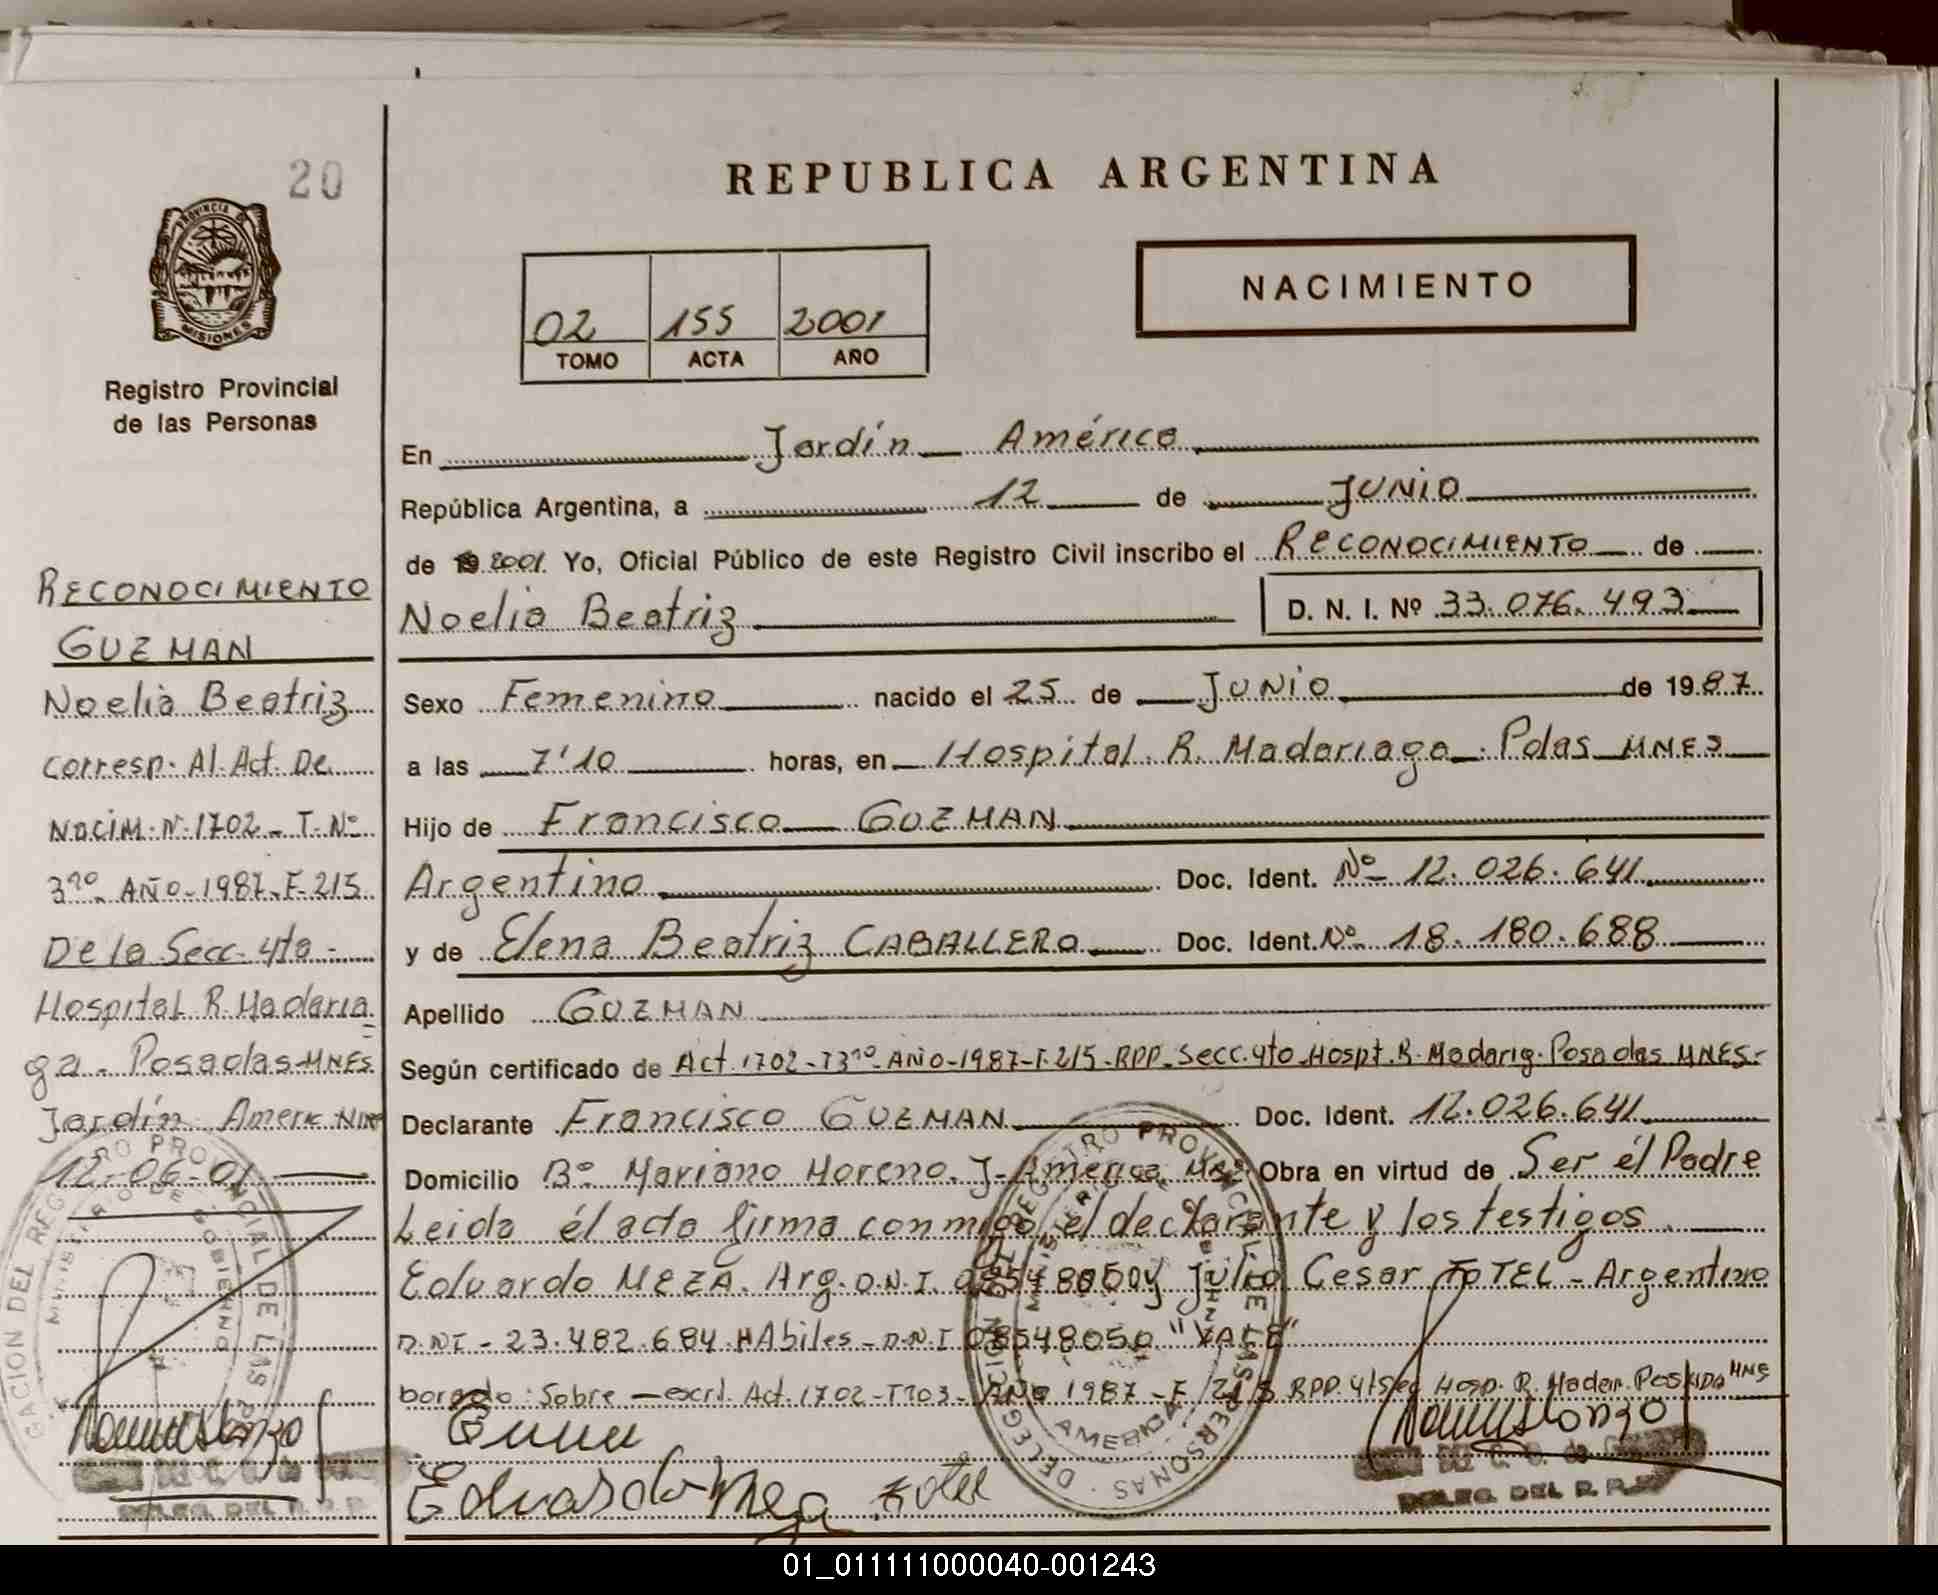 20
PROVINCIA DE
MISIONES
Registro Provincial
de las Personas
RECONOCIMIENTO
GUZMAN
Noelia Beatriz
corresp. Al. Act. De
Nacim. Nº 1702 - T. Nº
3ro - AÑO - 1987 - F. 215
De la Secc. 4ta -
Hospital R. Madaria
ga - Posadas MNES
Jardín Americ
12-06-01
REPUBLICA ARGENTINA
NACIMIENTO
02 155 2001
TOMO ACTA AÑO
En Jardín América
República Argentina, a 12 de JUNIO
de 19 2001 Yo, Oficial Público de este Registro Civil inscribo el RECONOCIMIENTO de
Noelia Beatriz D. N. I. Nº 33.076.493
Sexo Femenino nacido el 25 de JUNIO de 1987
a las 7'10 horas, en Hospital R. Madariaga - Pdas MNES
Hijo de Francisco GUZMAN
Argentino Doc. Ident. Nº 12.026.641
y de Elena Beatriz CABALLERO Doc. Ident. Nº 18.180.688
Apellido GUZMAN
Según certificado de Act. 1702 - T 3ro - AÑO - 1987 - F. 215 - RPP - Secc. 4to - Hospt. R. Madarig. Posadas MNES -
Declarante Francisco GUZMAN Doc. Ident. 12.026.641
Domicilio Bº Mariano Moreno. J. América Obra en virtud de Ser él Padre
Leida él acta firma conmigo el declarante y los testigos
Eduardo MEZA. Arg. D.N.I. y Julio Cesar FOTEL - Argentino
D.NI - 23.482.684 HAbiles - D.N.I 08548050 "VALE"
borado: Sobre - escrt. Act. 1702 - AÑO 1987 - F 215 RPP. Hosp. R. Madar. MNES
Eduardo Meza Fotel
DELEG. DEL R. P. P.
DELEG. DEL R. P. P.
DELEGACION DEL REGISTRO PROVINCIAL DE LAS PERSONAS
MINISTERIO DE GOBIERNO
AMERICA
01_011111000040-001243